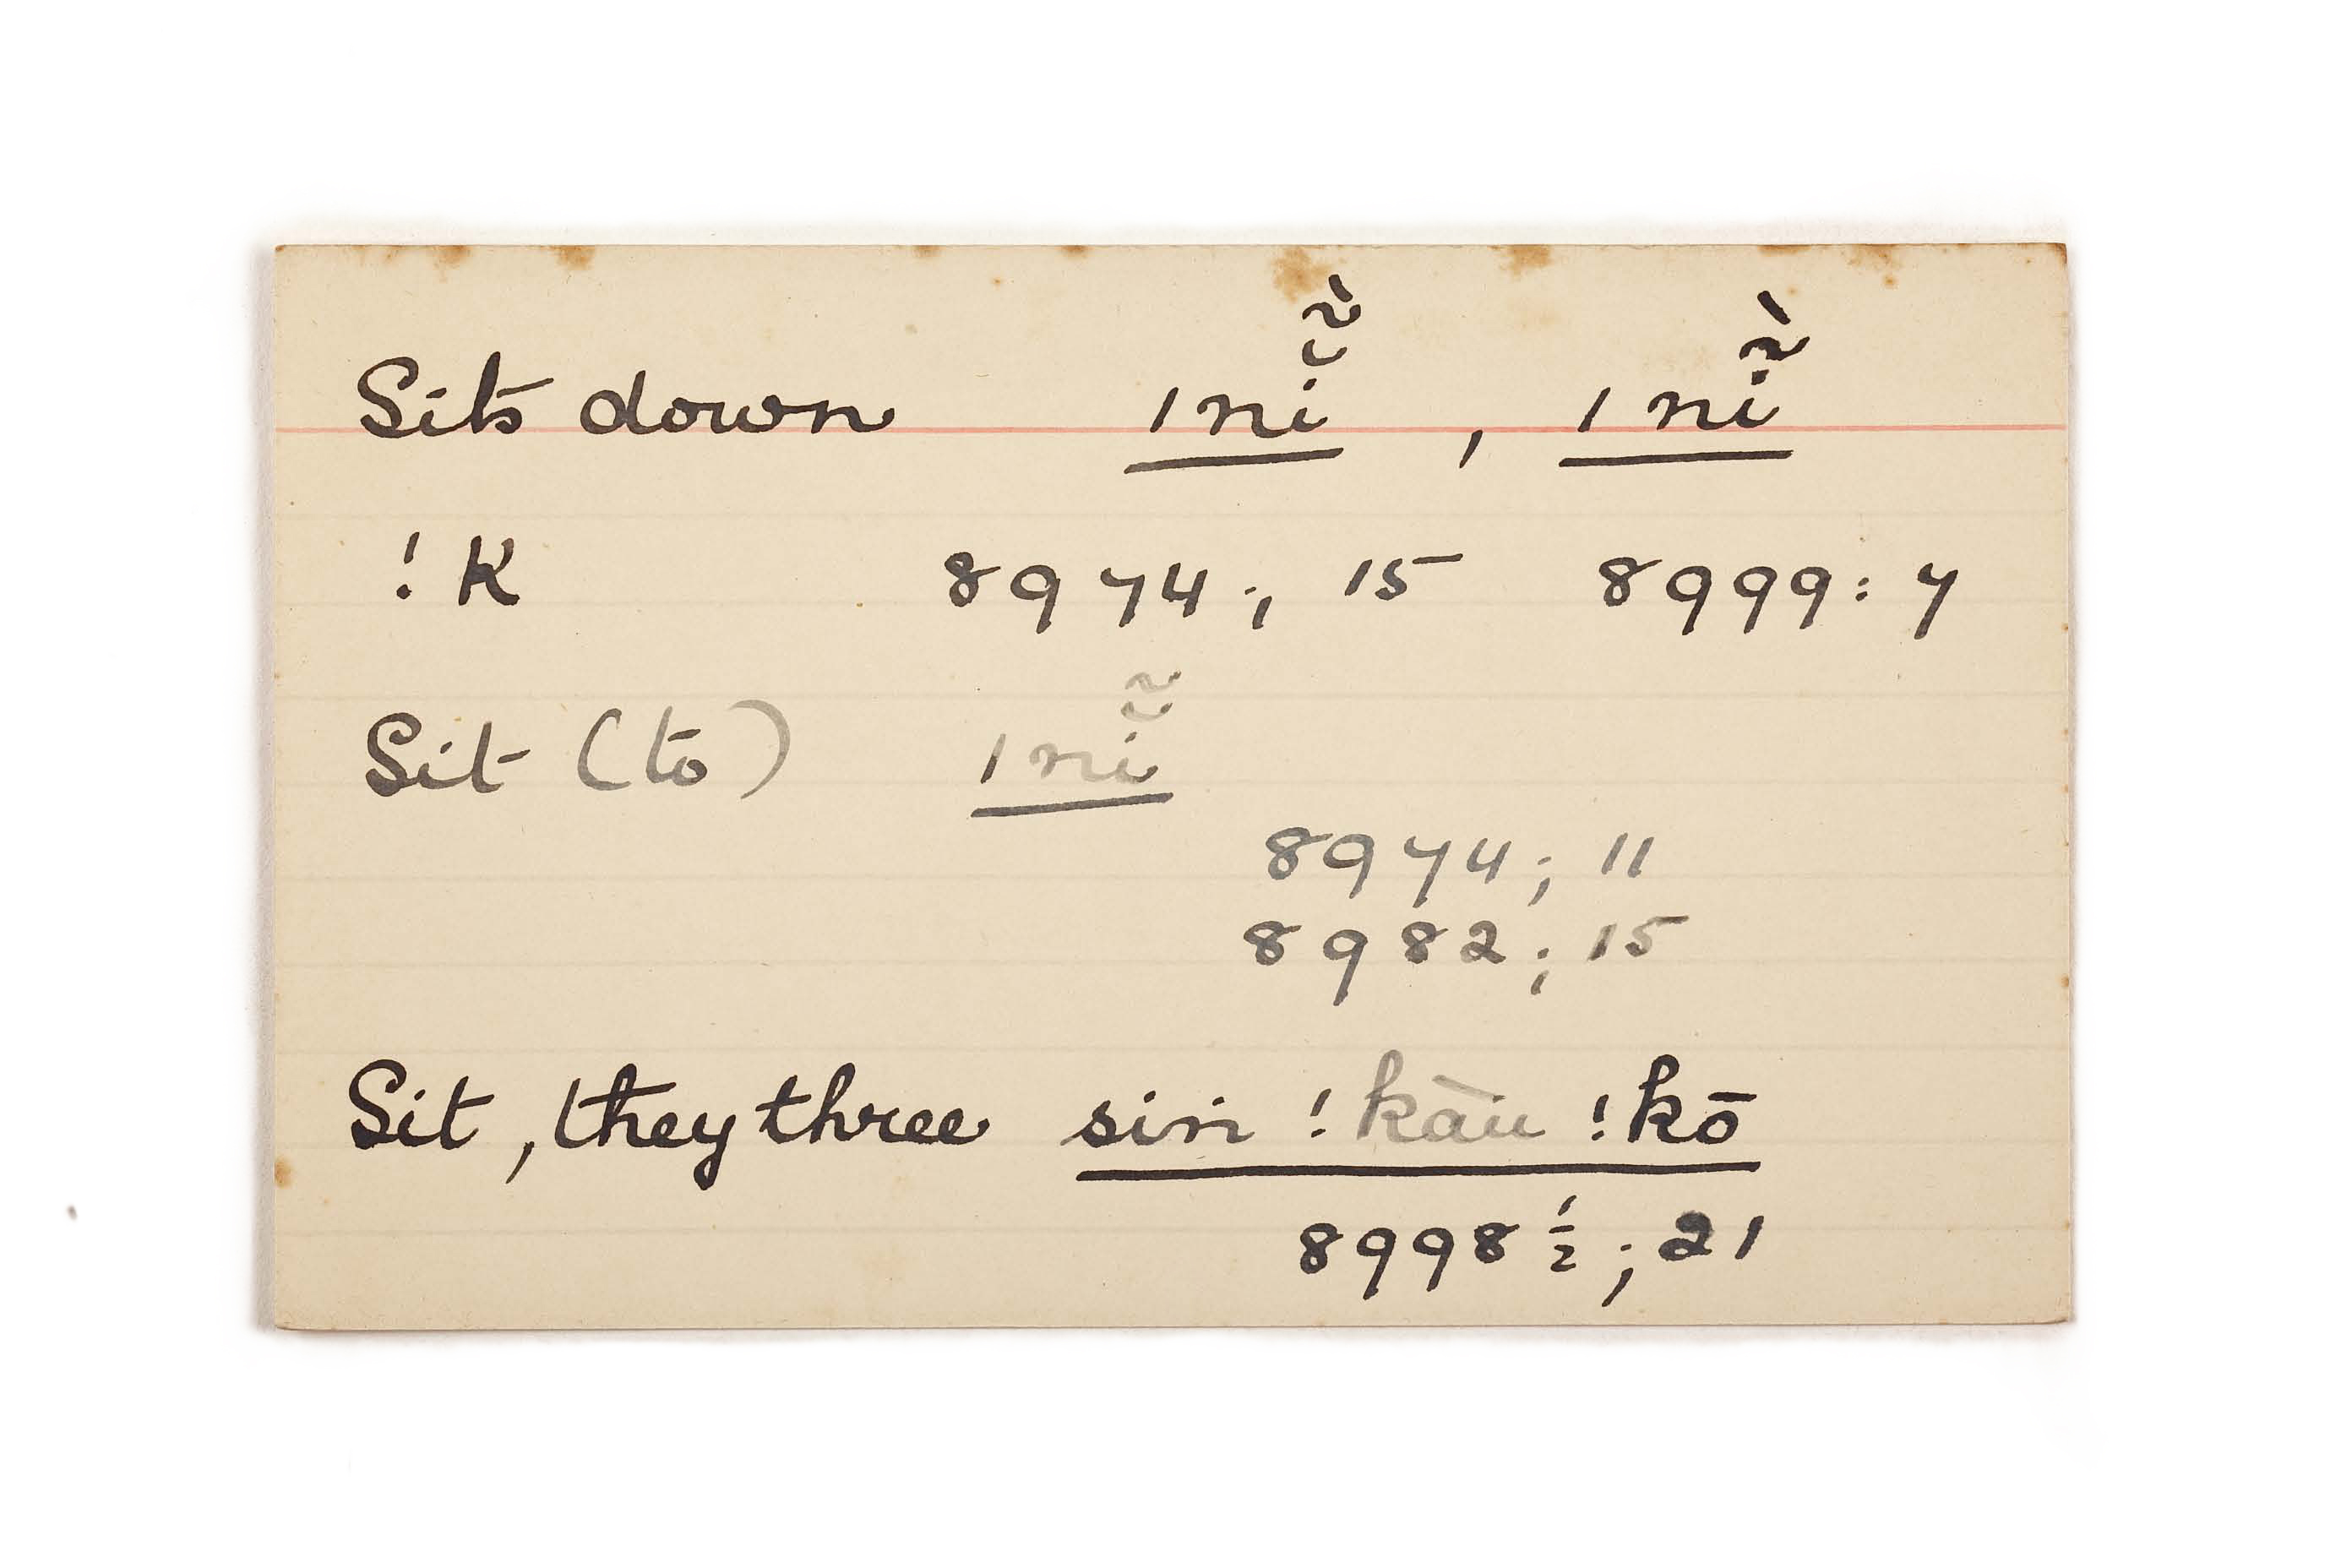 Sits down ǀnĭ̃̀, ǀnĩ̀
!K 8974:, 15 8999:7
Sit (to) ǀnĭ̃
8974; 11
8982; 15
Sit, they three siṅ !kāu !kō
8998½; 21